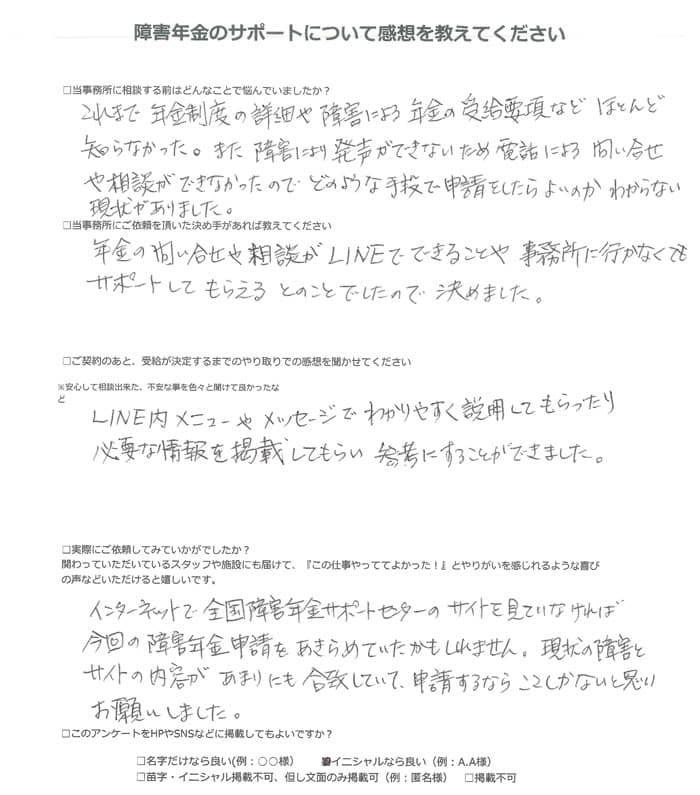 障害年金のサポートについて感想を教えてください
□当事務所に相談する前はどんなことで悩んでいましたか？
これまで 年金制度の詳細や障害による年金の受給要項など ほとんど
知らなかった。また 障害により発声ができないため 電話による 問い合せ
や相談ができなかったので どのような手段で申請をしたらよいのか わからない
現状がありました。
□当事務所にご依頼を頂いた決め手があれば教えてください
年金の問い合せや相談がLINEでできることや 事務所に行かなくても
サポートしてもらえる とのことでしたので 決めました。
□ご契約のあと、受給が決定するまでのやり取りでの感想を聞かせてください
※安心して相談出来た、不安な事を色々と聞けて良かったな
ど
LINE内メニューやメッセージで わかりやすく説明してもらったり
必要な情報を掲載してもらい 参考にすることができました。
□実際にご依頼してみていかがでしたか？
関わっていただいているスタッフや施設にも届けて、『この仕事やっててよかった！』とやりがいを感じれるような喜び
の声などいただけると嬉しいです。
インターネットで 全国障害年金サポートセンターの サイトを見ていなければ
今回の障害年金申請を あきらめていたかもしれません。現状の障害と
サイトの内容が あまりにも 合致していて、申請するなら ここしかないと思い
お願いしました。
□このアンケートをHPやSNSなどに掲載してもよいですか？
□名字だけなら良い(例：○○様） ■イニシャルなら良い（例：A.A様）
□苗字・イニシャル掲載不可、但し文面のみ掲載可（例：匿名様） □掲載不可